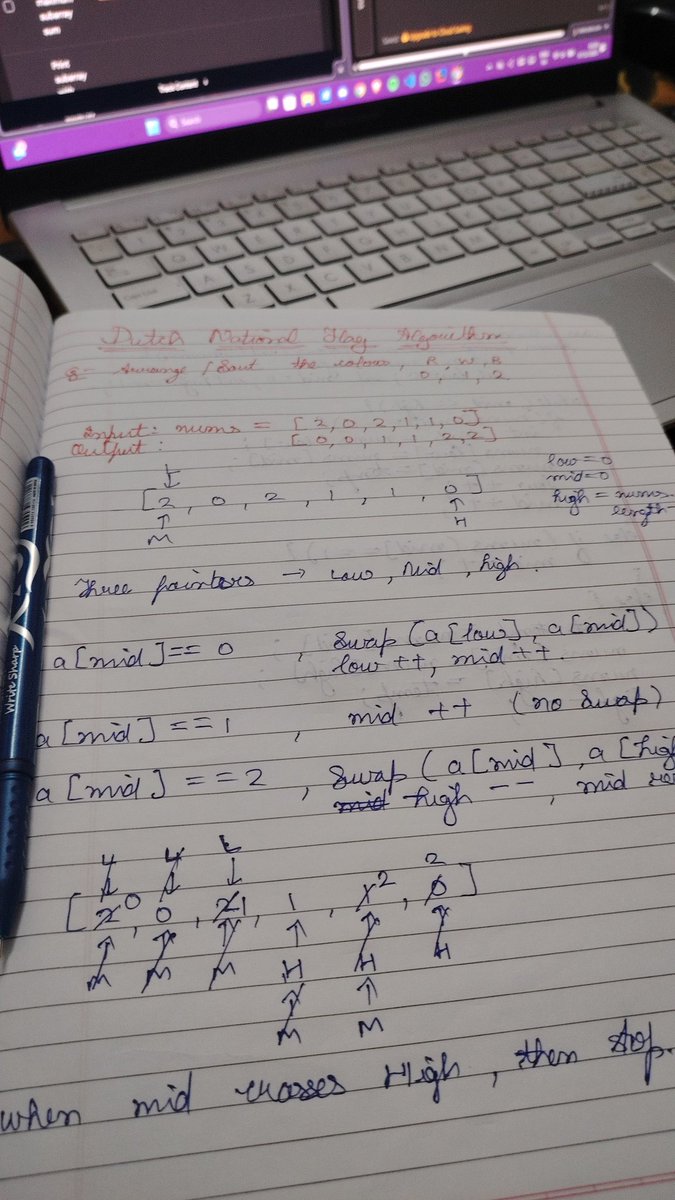 subarray
sum
Print
subarray
Track Content
Upgrade to Cloud Saving
Search
Dutch National Flag Algorithm
Q- Arrange / Sort the colors, R, W, B
0, 1, 2
Input: nums = [2, 0, 2, 1, 1, 0]
Output: [0, 0, 1, 1, 2, 2]
L
[2, 0, 2, 1, 1, 0]
M H
low = 0
mid = 0
high = nums.
length-
Three pointers → Low, Mid, high.
a[mid] == 0 , Swap (a[low], a[mid])
low ++, mid ++.
a[mid] == 1 , mid ++ (no swap)
a[mid] == 2 , Swap (a[mid], a[high
mid high -- , mid
L L L 2
[2 0, 0, 2 1, 1, 1 2, 0]
M M M H H H
M M
when mid crosses High, then stop.
Write Sharp